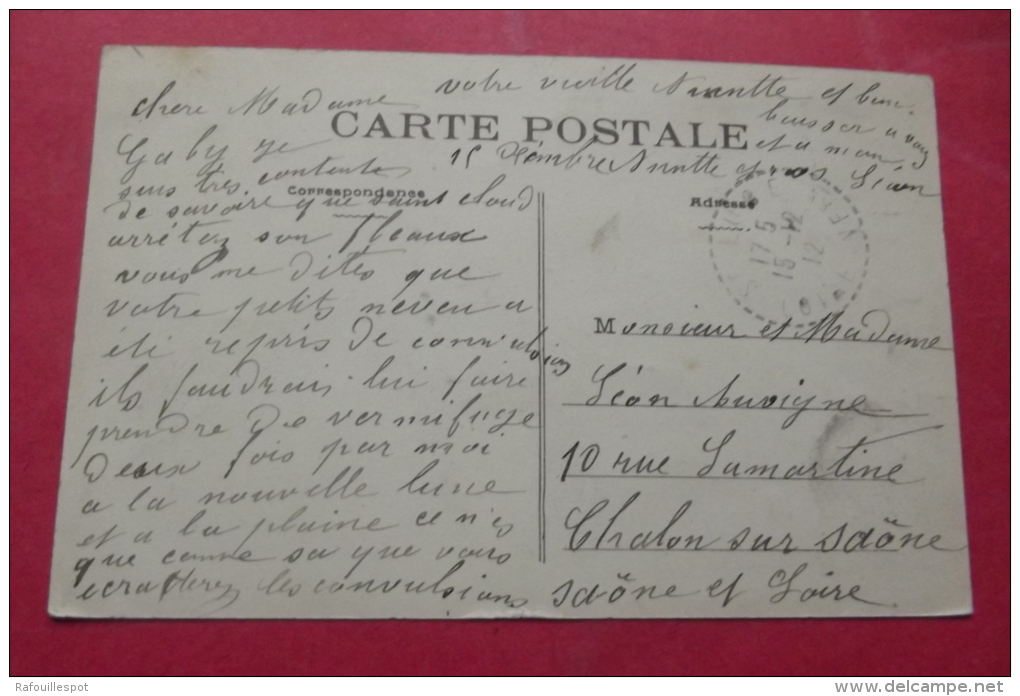 chere Madame
votre vieille Nanette et bon
baisser a vous
et a mon
gros Léon
CARTE POSTALE
15 Dembre
Gaby je
suis tres contente
Correspondance
Adresse
de savoire que saint cloud
arrétez son fleaux
vous me dites que
votre petits neveu a
été repris de convulsions
ils faudrais lui faire
prendre De vermifuge
Deux fois par moi
a la nouvelle lune
et a la plaine ce n'es
que comme sa que vous
les convulsions
17 5
15 -12
12
Monsieur et Madame
Léon Auvigne
10 rue Lamartine
Chalon sur saöne
saöne et Loire
Rafouillespot
delcampe.net